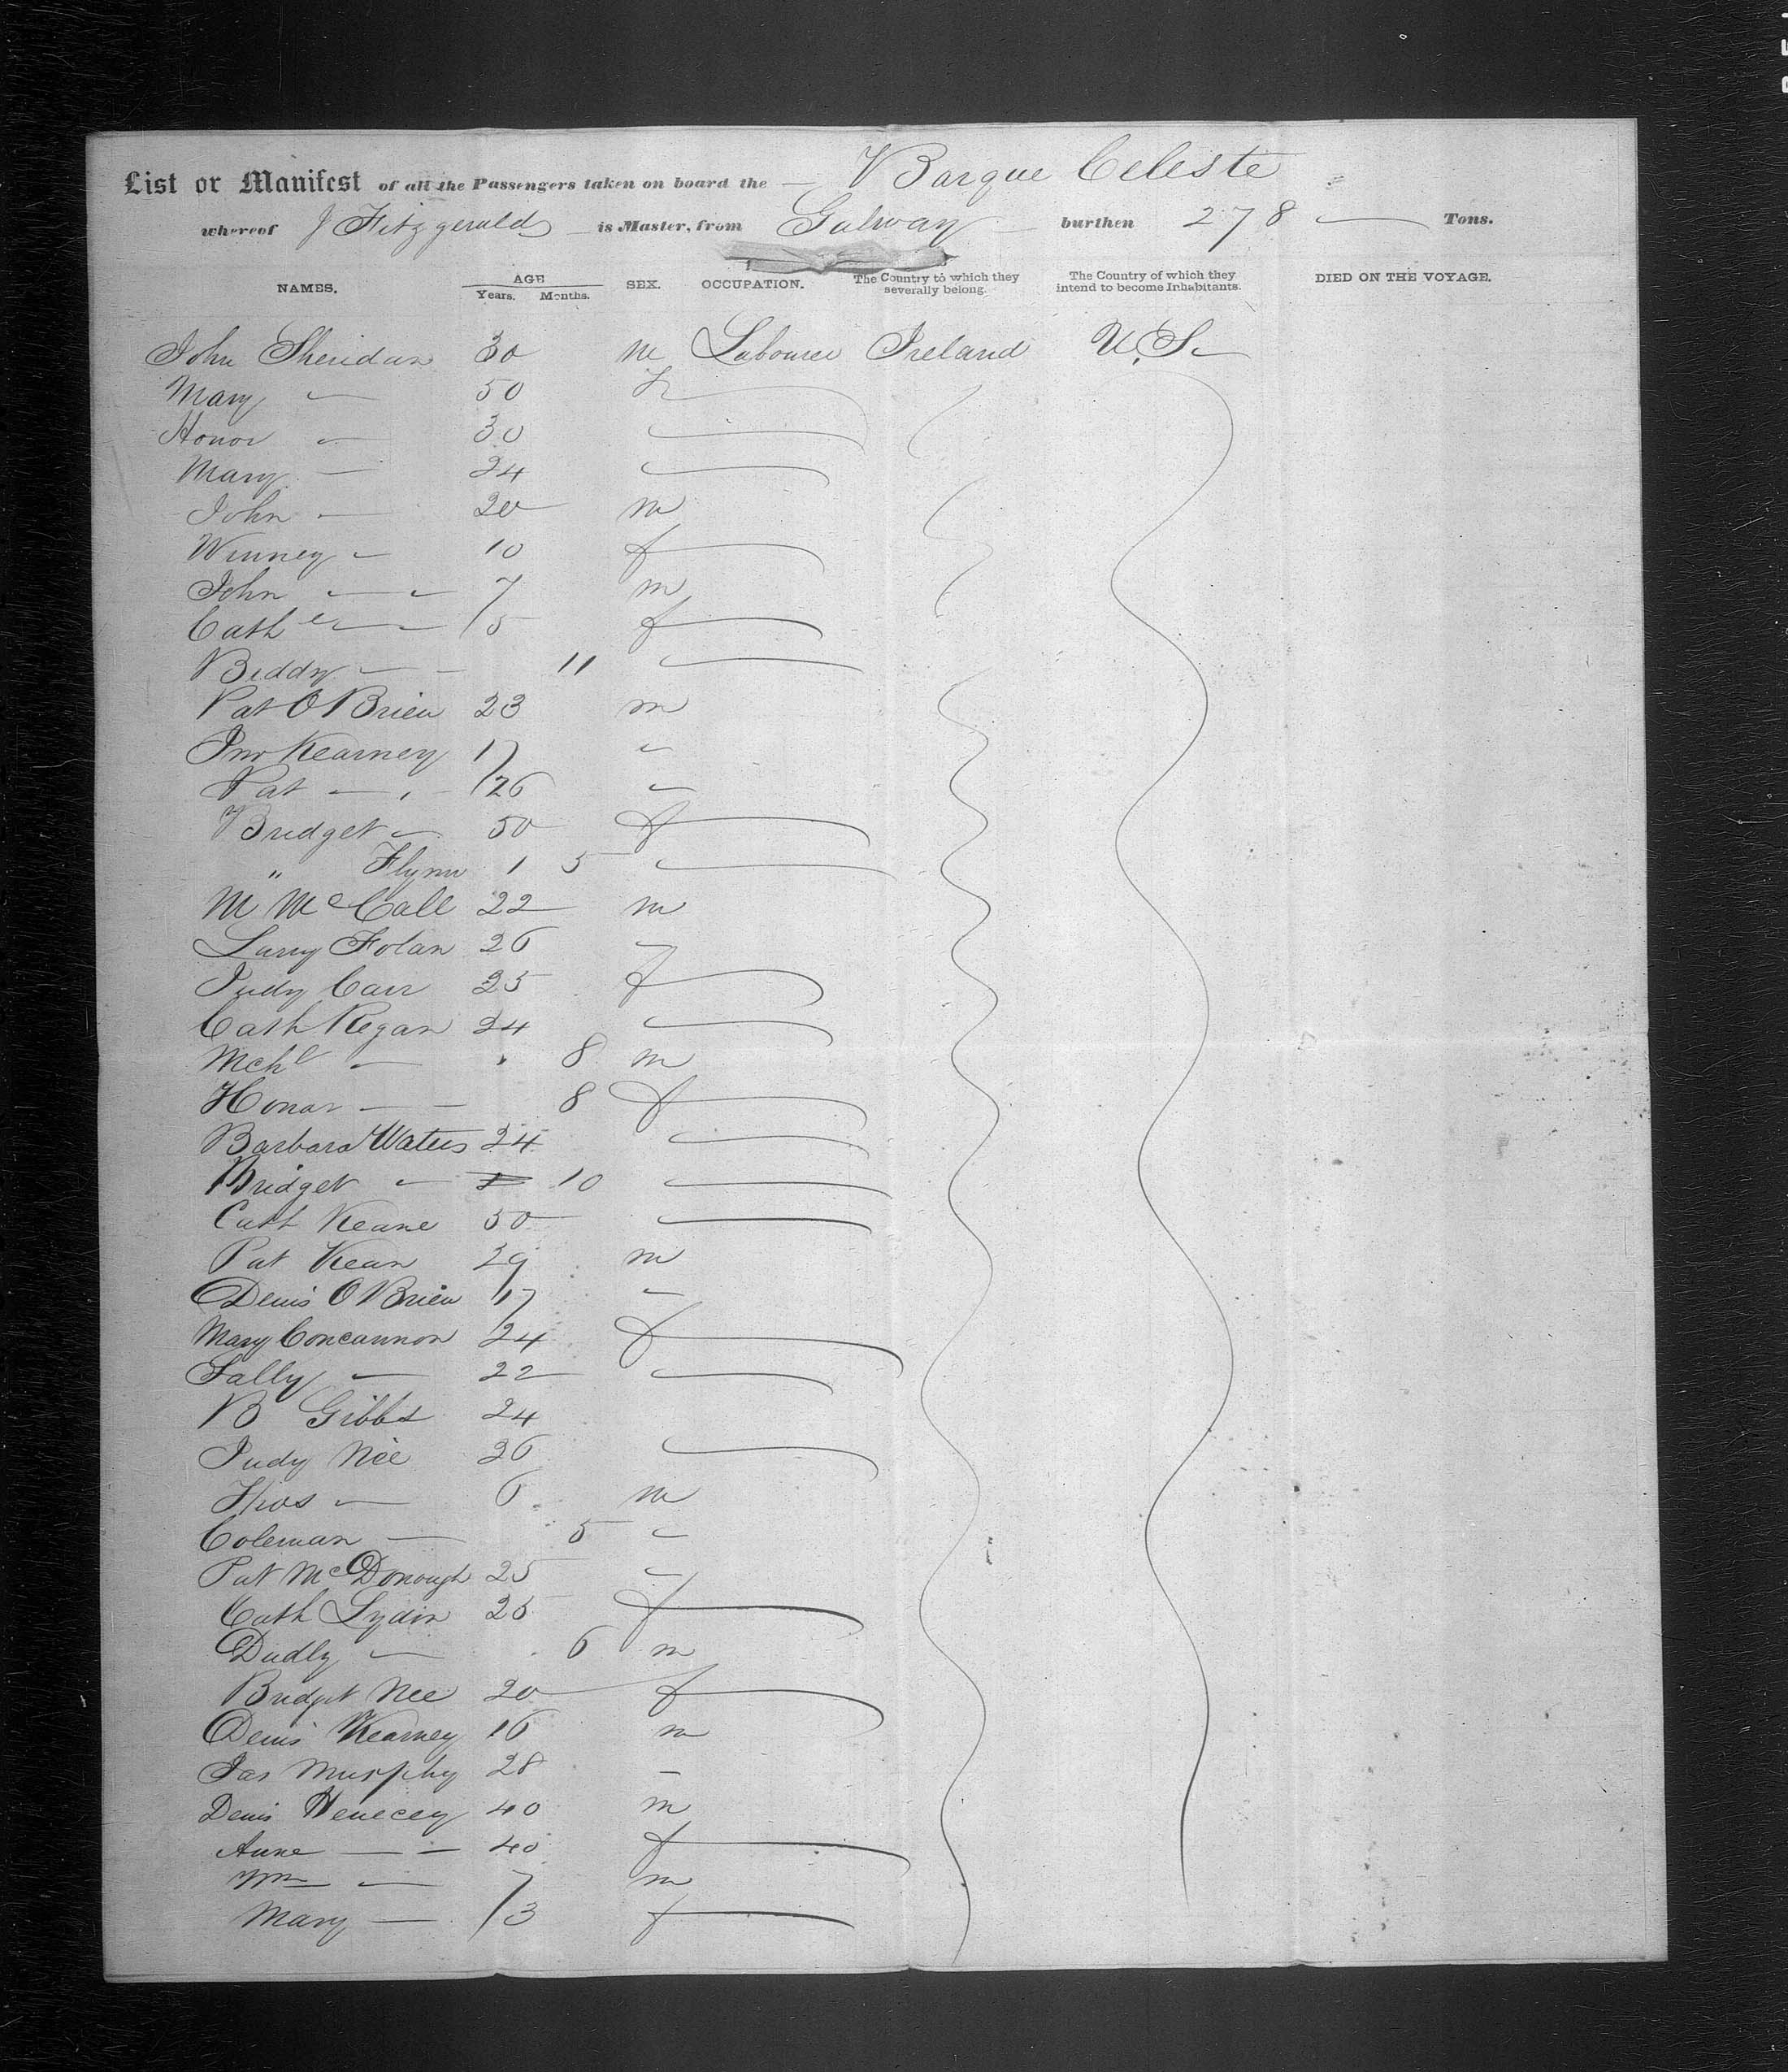 List or Manifest of all the Passengers taken on board the — Barque Celeste
whereof J Fitzgerald is Master, from Galway burthen 278 — Tons.
NAMES. AGE Years. Months. SEX. OCCUPATION. The Country to which they severally belong. The Country of which they intend to become Inhabitants. DIED ON THE VOYAGE.
John Sheridan 30 m Labourer Ireland U.S.
Mary — 50 f
Honor — 30
Mary — 24
John — 20 m
Winney — 10 f
John — 7 m
Cathe — 5 f
Biddy — 11
Pat O Brien 23 m
Jno Kearney 17
Pat — 26
Bridget — 50 f
" Flynn 1 5
M McCall 22 m
Larry Folan 26
Judy Carr 25 f
Cath Regan 24
Mchl — 8 m
Honor — 8 f
Barbara Waters 24
Bridget — 10
Cath Keane 50
Pat Kean 29 m
Denis O Brien 17
Mary Concannon 24 f
Sally — 22
B Gibbs 24
Judy Nee 26
Thos — 6 m
Coleman — 5
Pat McDonough 25
Cath Lydin 25 f
Dudly — 6 m
Bridget Nee 20 f
Denis Kearney 16 m
Jas Murphy 28 –
Denis 40 m
Anne — 40 f
Wm — 7 m
Mary — 3 f